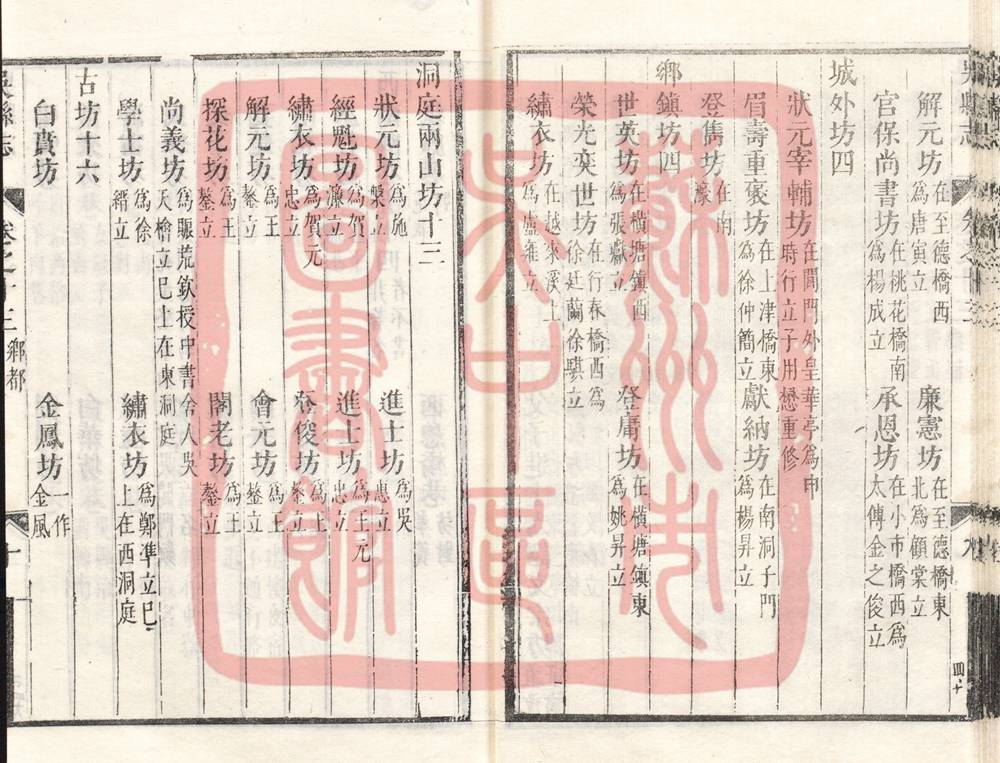 吳縣志 卷之十三
解元坊 在至德橋西為唐寅立 廉憲坊 在至德橋東北為顧棠立
官保尚書坊 在桃花橋南為楊成立 承恩坊 在小市橋西為太傅金之俊立
城外坊四
狀元宰輔坊 在閶門外皇華亭為申時行立子用懋重修
眉壽重褒坊 在上津橋東為徐仲簡立 獻納坊 在南洞子門為楊昇立
登雋坊 在南濠
鄉鎮坊四
世英坊 在橫塘鎮西為張獻立 登庸坊 在橫塘鎮東為姚昇立
榮光奕世坊 在行春橋西為徐廷蘭徐騏立
繡衣坊 在越來溪上為盧雍立
洞庭兩山坊十三
狀元坊 為施槃立 進士坊 為吳惠立
經魁坊 為賀濂立 進士坊 為王元忠立
繡衣坊 為賀元忠立 俊坊 為王鏊立
解元坊 為王鏊立 會元坊 為王鏊立
探花坊 為王鏊立 閣老坊 為王鏊立
尚義坊 為賑荒欽授中書舍人吳天檜立已上在東洞庭
學士坊 為徐縉立 繡衣坊 為鄭準立已上在西洞庭
古坊十六
白賁坊 金鳳坊 一作金風
吳縣志 卷之十三 鄉都 十
蘇州市文物圖書館